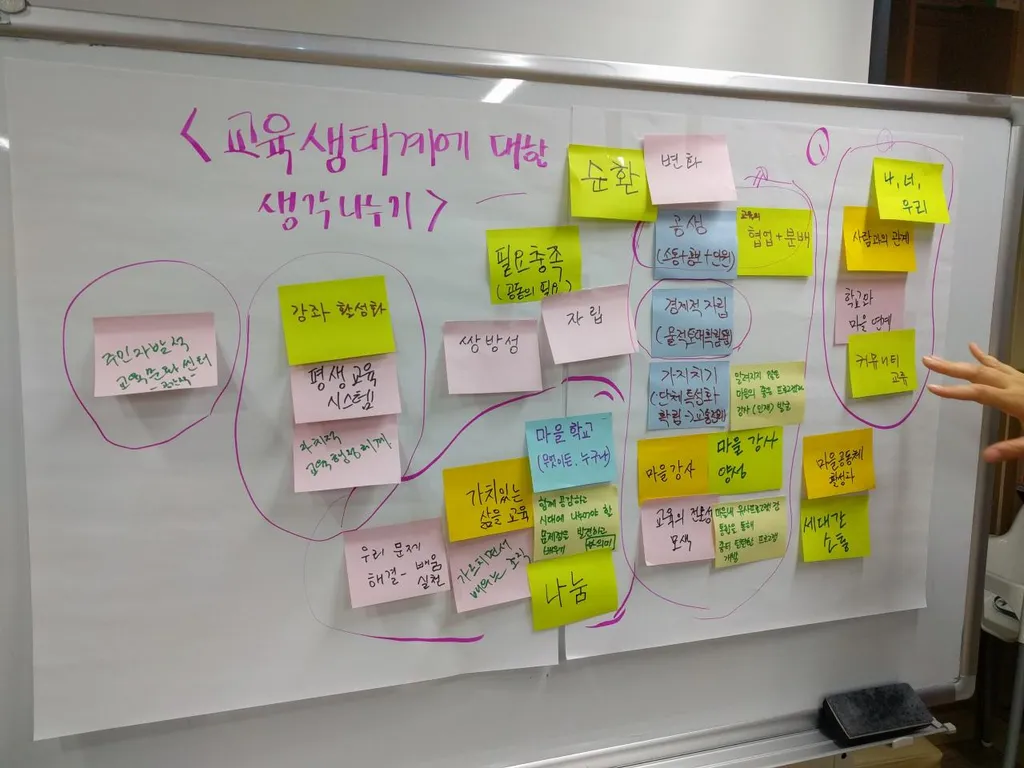 <교육생태계에 대한
생각나누기>
순환
변화
①
나, 너,
우리
사람과의 관계
학교와
마을 연계
커뮤니티
교류
공생
(소통+홍보+단원)
교육의
협업+분배
필요충족
(공동의 필요)
경제적 자립
(물적토대확립)
자립
쌍방성
강좌 활성화
평생교육
시스템
교육행정체계
주민자발적
교육문화 센터
가치치기
(단체특성화
확립->
알려지지 않은
마을의
강사(인재) 발굴
마을학교
(무엇이든, 누구나)
마을강사
마을 강사
양성
마을공동체
활성화
가치있는
삶을 교육
함께 공감하고
시대에 나누어야 할
문제점을 발견하고
배움의
교육의 전문성
모색
마을내
통합을 통해
개발
세대간
소통
우리 문제
해결- 배움
실천
가르치면서
배우는 조직
나눔